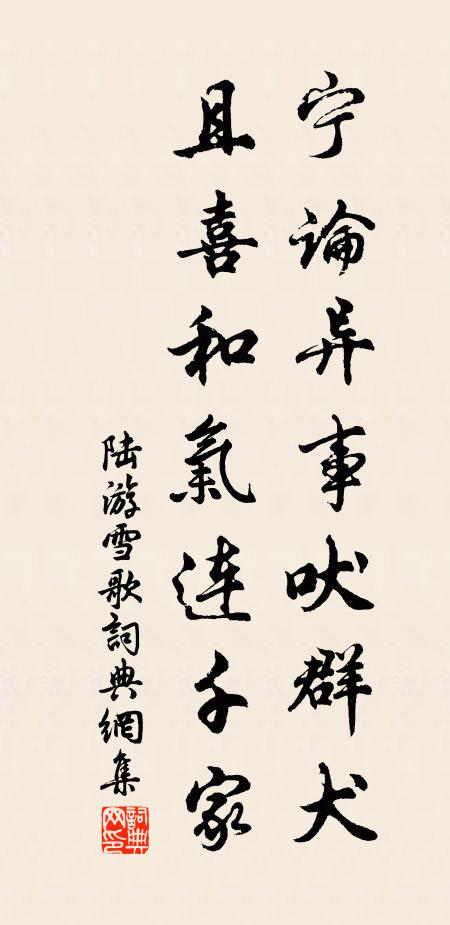 宁论异事吠群犬
且喜和氣连千家
陆游雪歌詞典網集
詞典网印